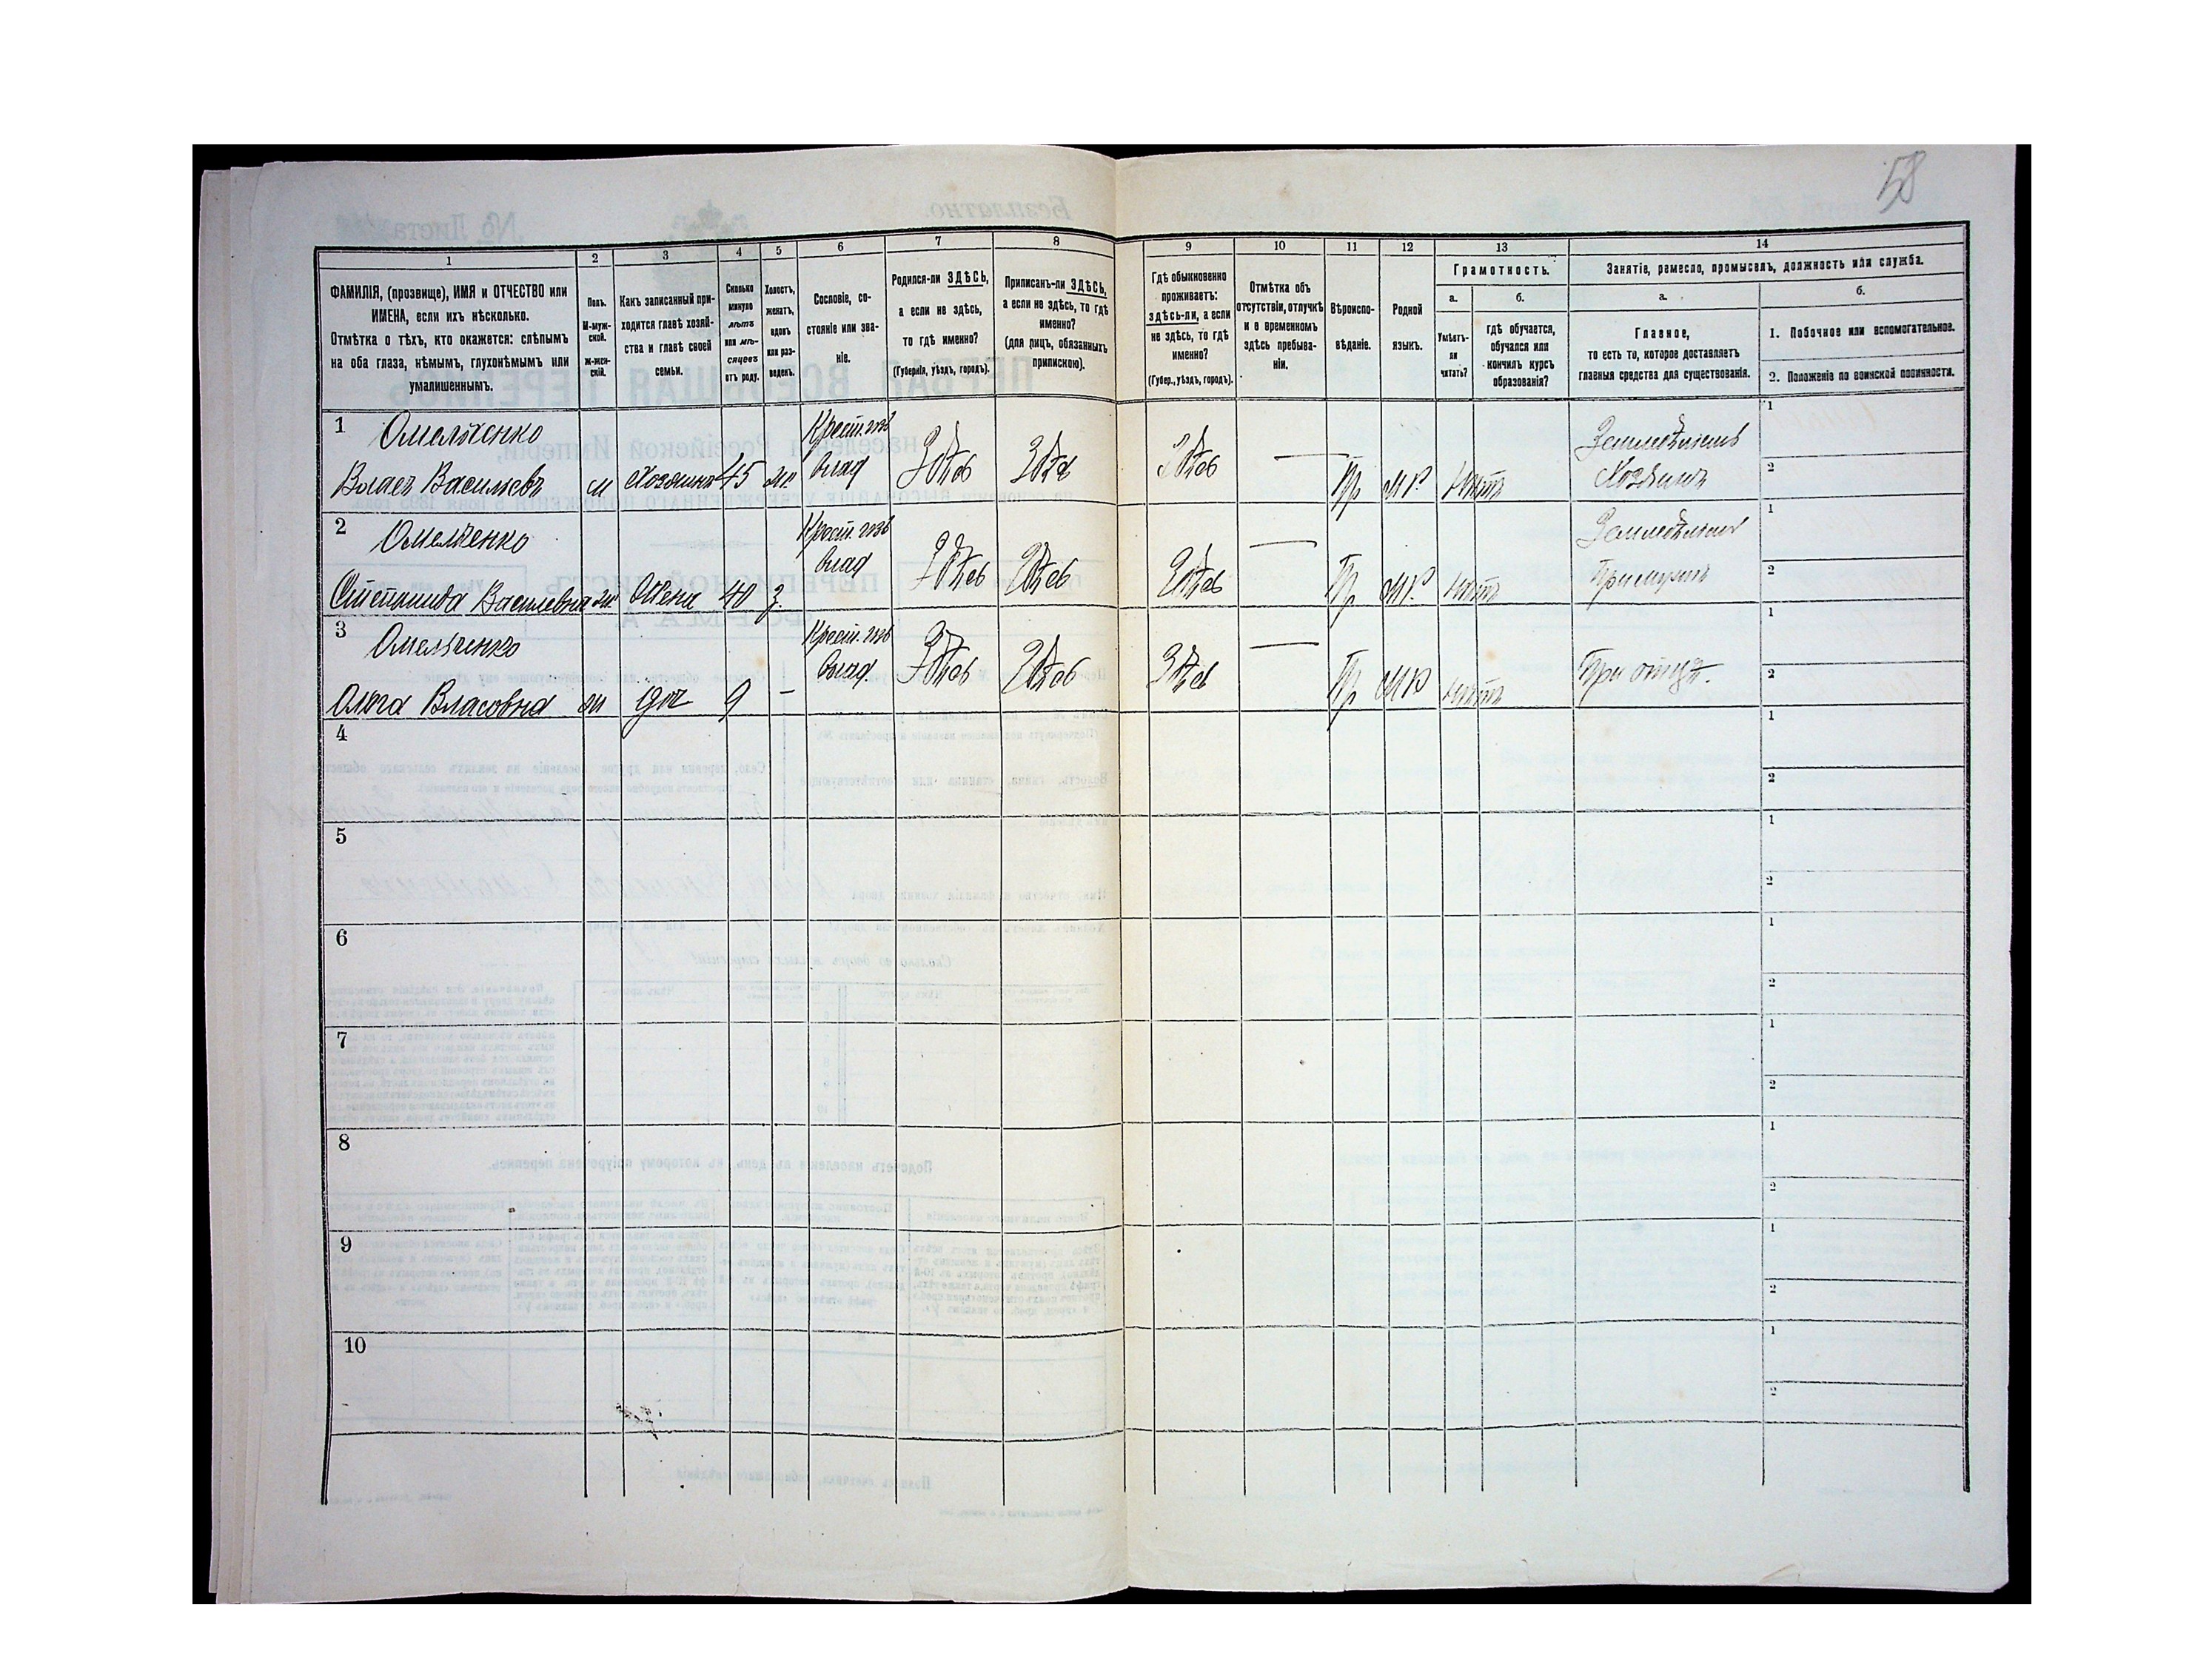 58
1
2
3
4
5
6
7
8
9
10
11
12
13
14
ФАМИЛІЯ, (прозвище), ИМЯ и ОТЧЕСТВО или
ИМЕНА, если ихъ нѣсколько.
Отмѣтка о тѣхъ, кто окажется: слѣпымъ
на оба глаза, нѣмымъ, глухонѣмымъ или
умалишеннымъ.
Полъ.
М-муж-
ской.
Ж-жен-
скій.
Какъ записанный при-
ходится главѣ хозяй-
ства и главѣ своей
семьи.
Сколько
минуло
лѣтъ
или мѣ-
сяцевъ
отъ роду.
Холостъ,
женатъ,
вдовъ
или раз-
веденъ.
Сословіе, со-
стояніе или зва-
ніе.
Родился-ли ЗДѢСЬ,
а если не здѣсь,
то гдѣ именно?
(Губернія, уѣздъ, городъ).
Приписанъ-ли ЗДѢСЬ,
а если не здѣсь, то гдѣ
именно?
(для лицъ, обязанныхъ
припискою).
Гдѣ обыкновенно
проживаетъ:
здѣсь-ли, а если
не здѣсь, то гдѣ
именно?
(Губер., уѣздъ, городъ).
Отмѣтка объ
отсутствіи, отлучкѣ
и о временномъ
здѣсь пребыва-
ніи.
Вѣроиспо-
вѣданіе.
Родной
языкъ.
Грамотность.
а.
б.
Умѣетъ-
ли
читать?
гдѣ обучается,
обучался или
кончилъ курсъ
образованія?
Занятіе, ремесло, промыселъ, должность или служба.
а.
б.
Главное,
то есть то, которое доставляетъ
главныя средства для существованія.
1. Побочное или вспомогательное.
2. Положеніе по воинской повинности.
1 Омельченко Крест. гозъ Земледѣлецъ 1
Власъ Васильевъ м Хозяинъ 45 ж. влад Здѣсь Здѣсь Здѣсь — Пр МР нѣтъ Хозяинъ 2
2 Омельченко Крест. гозъ Земледѣліе 1
Степанида Васильевна ж Жена 40 з. влад Здѣсь Здѣсь Здѣсь — Пр МР нѣтъ При мужѣ 2
3 Омельченко Крест. гозъ 1
Ольга Власовна ж доч 9 — влад. Здѣсь Здѣсь Здѣсь — Пр МР нѣтъ При отцѣ. 2
4 1
2
5 1
2
6 1
2
7 1
2
8 1
2
9 1
2
10 1
2